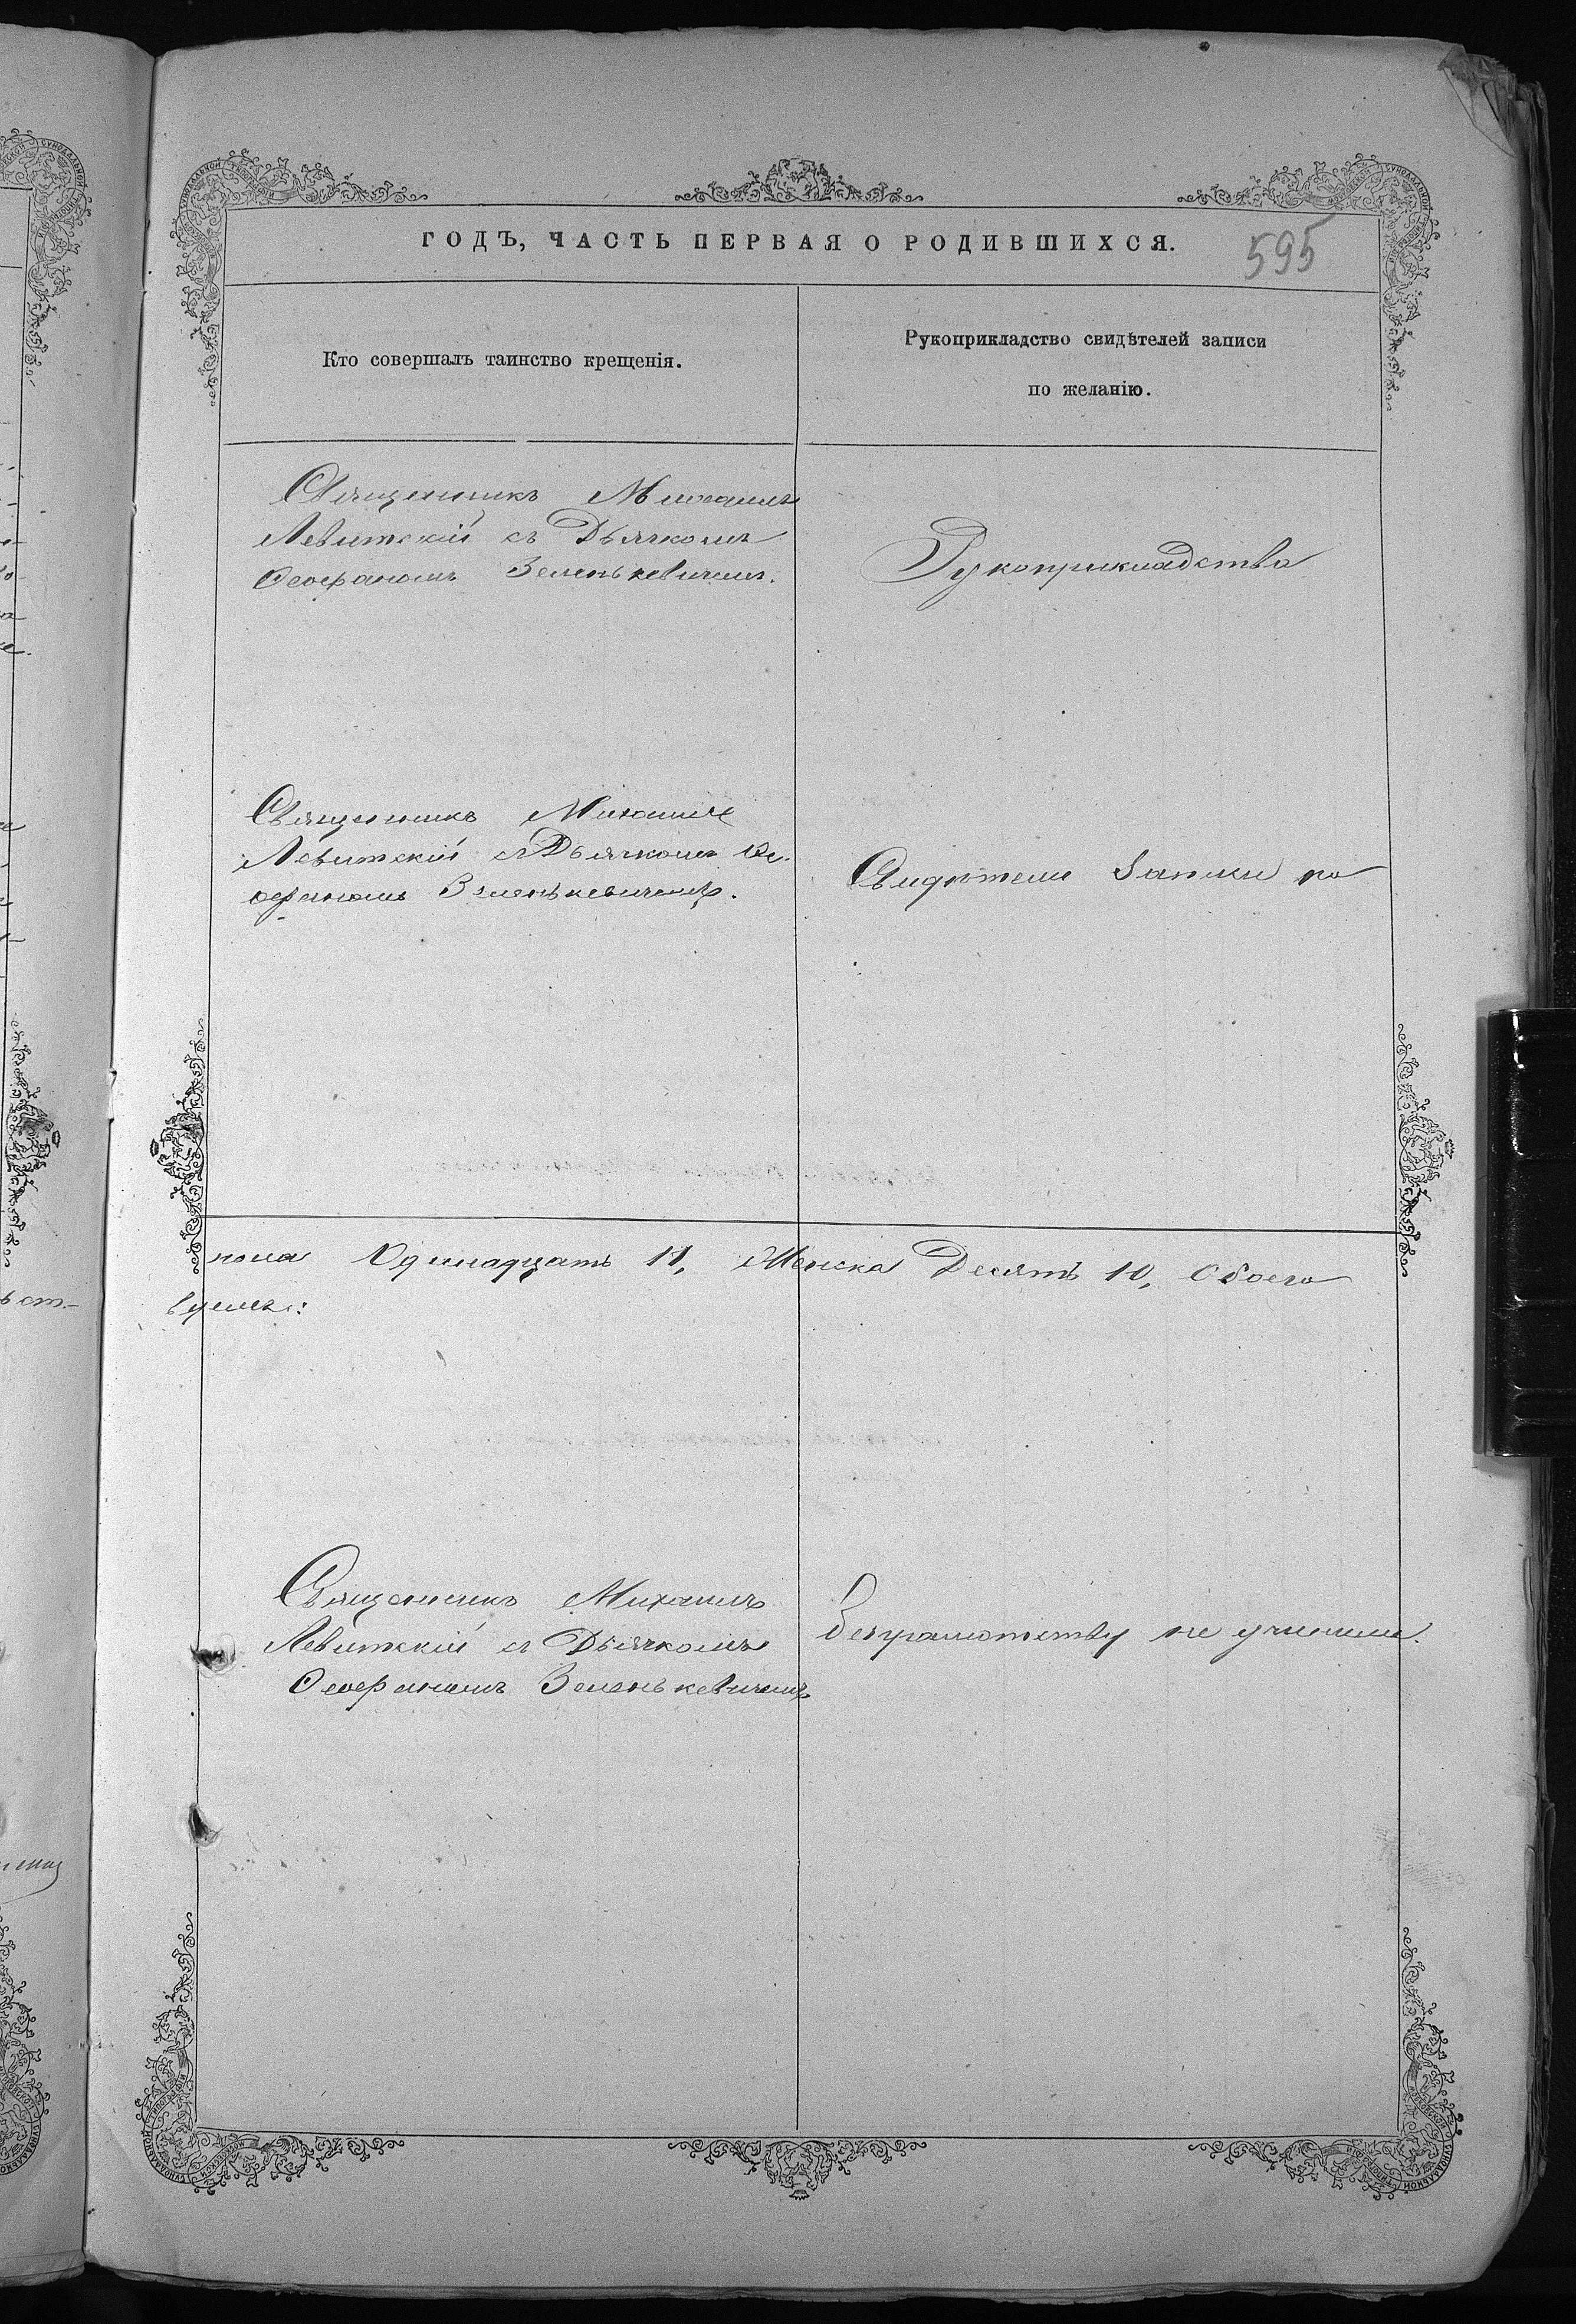 ГОДЪ, ЧАСТЬ ПЕРВАЯ О РОДИВШИХСЯ.
595
Кто совершалъ таинство крещенія.
Рукоприкладство свидѣтелей записи
по желанію.
Священникъ Михаилъ
Левитскій съ Дьячкомъ
Ѳеофаномъ Зеленькевичемъ.
Рукоприкладства
Священникъ Михаилъ
Левитскій съ Дьячкомъ Ѳе-
офаномъ Зеленькевичемъ.
Свидѣтели Записи по
пола Одинадцать 11, Женска Десять 10, Обоего
Священникъ Михаилъ
Левитскій съ Дьячкомъ
Ѳеофаномъ Зеленькевичемъ
безграмотству не учинили.